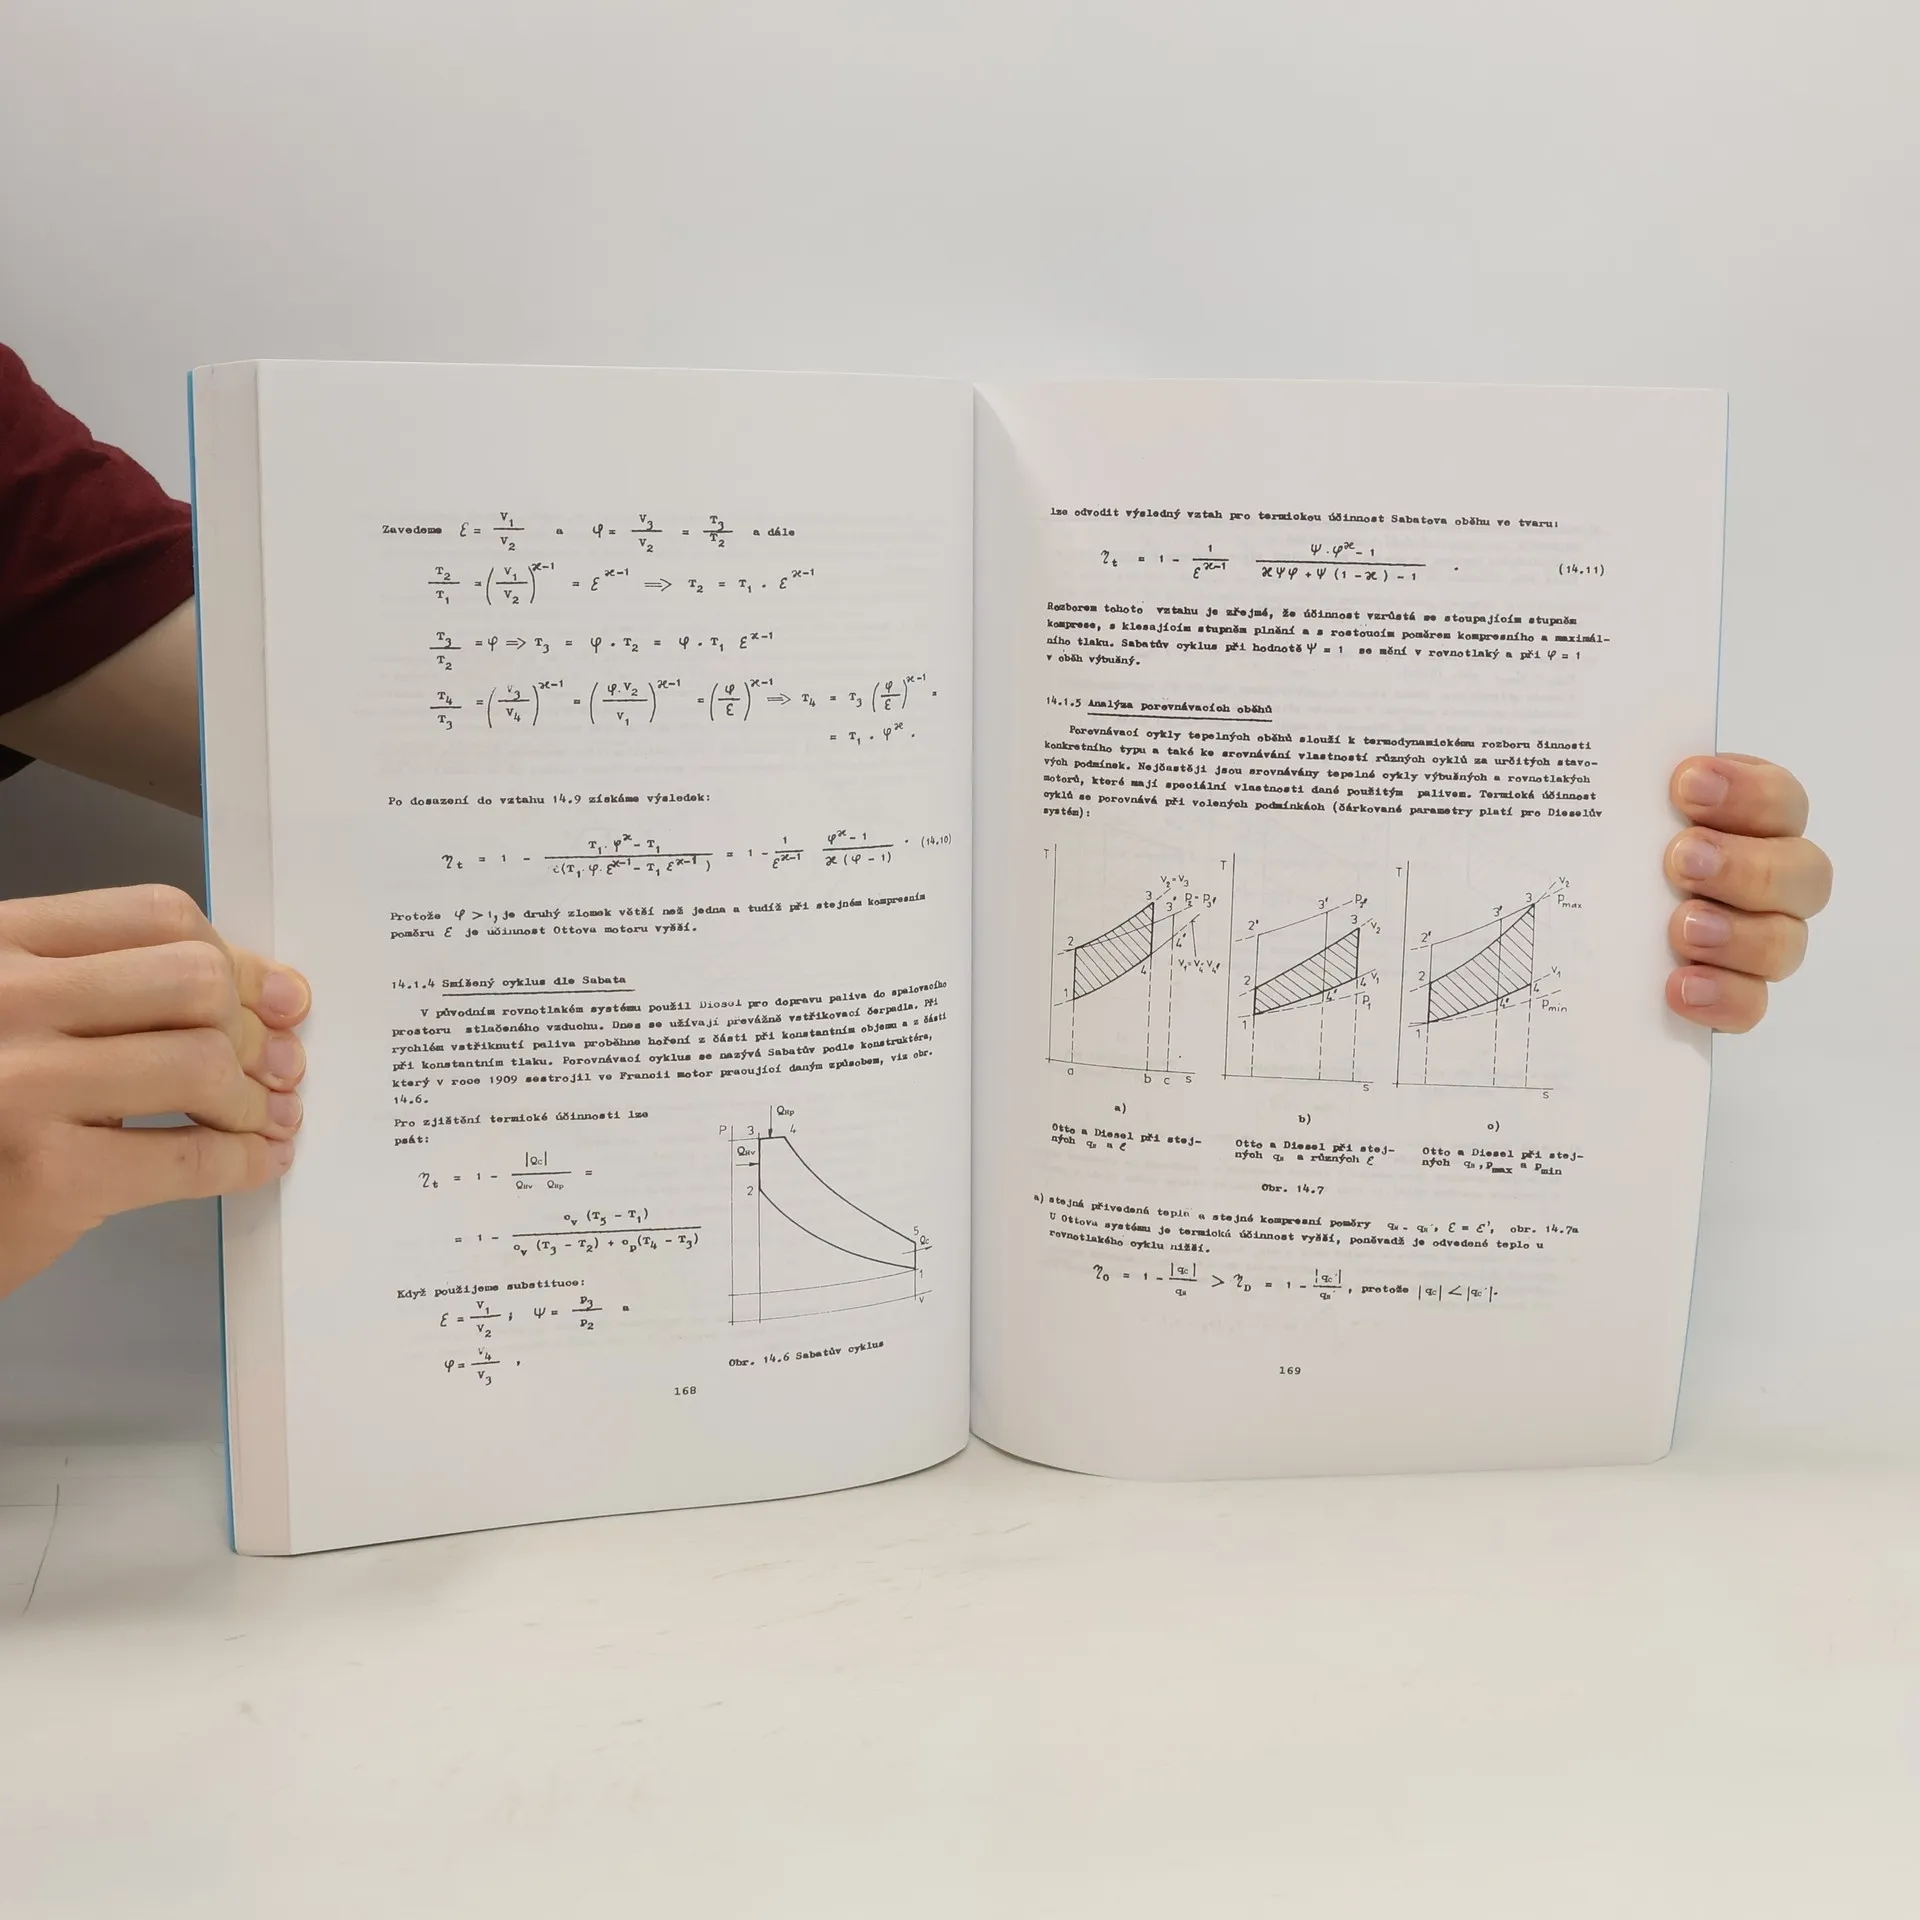 Zavedeme ε = V₁/V₂ a φ = V₃/V₂ = T₃/T₂ a dále
T₂/T₁ = (V₁/V₂)^(ϰ-1) = ε^(ϰ-1) ⟹ T₂ = T₁ . ε^(ϰ-1)
T₃/T₂ = φ ⟹ T₃ = φ . T₂ = φ . T₁ ε^(ϰ-1)
T₄/T₃ = (V₃/V₄)^(ϰ-1) = (φ.V₂/V₁)^(ϰ-1) = (φ/ε)^(ϰ-1) ⟹ T₄ = T₃ (φ/ε)^(ϰ-1) =
= T₁ . φ^ϰ .
Po dosazení do vztahu 14.9 získáme výsledek:
η_t = 1 - (T₁. φ^ϰ - T₁)/((T₁. φ. ε^(ϰ-1) - T₁ ε^(ϰ-1))) = 1 - 1/ε^(ϰ-1) (φ^ϰ - 1)/(ϰ (φ - 1)) . (14.10)
Protože φ > 1, je druhý zlomek větší než jedna a tudíž při stejném kompresním
poměru ε je účinnost Ottova motoru vyšší.
14.1.4 Smíšený cyklus dle Sabata
V původním rovnotlakém systému použil Diesel pro dopravu paliva do spalovacího
prostoru stlačeného vzduchu. Dnes se užívají převážně vstřikovací čerpadla. Při
rychlém vstřiknutí paliva proběhne hoření z části při konstantním objemu a z části
při konstantním tlaku. Porovnávací cyklus se nazývá Sabatův podle konstruktéra,
který v roce 1909 sestrojil ve Francii motor pracující daným způsobem, viz obr.
14.6.
Pro zjištění termické účinnosti lze
psát:
η_t = 1 - |Qc|/(Q_Hv Q_Hp) =
= 1 - c_v (T₅ - T₁)/(c_v (T₃ - T₂) + c_p(T₄ - T₃))
Když použijeme substituce:
ε = V₁/V₂ ; Ψ = P₃/P₂ a
φ = V₄/V₃ ,
P 3 Q_Hp 4
Q_Hv
2
5 Qc
1
V
Obr. 14.6 Sabatův cyklus
168
lze odvodit výsledný vztah pro termickou účinnost Sabatova oběhu ve tvaru:
η_t = 1 - 1/ε^(ϰ-1) (Ψ.φ^ϰ - 1)/(ϰΨφ + Ψ (1 - ϰ) - 1) . (14.11)
Rozborem tohoto vztahu je zřejmé, že účinnost vzrůstá se stoupajícím stupněm
komprese, s klesajícím stupněm plnění a s rostoucím poměrem kompresního a maximál-
ního tlaku. Sabatův cyklus při hodnotě Ψ = 1 se mění v rovnotlaký a při φ = 1
v oběh výbušný.
14.1.5 Analýza porovnávacích oběhů
Porovnávací cykly tepelných oběhů slouží k termodynamickému rozboru činnosti
konkretního typu a také ke srovnávání vlastností různých cyklů za určitých stavo-
vých podmínek. Nejčastěji jsou srovnávány tepelné cykly výbušných a rovnotlakých
motorů, které mají speciální vlastnosti dané použitým palivem. Termická účinnost
cyklů se porovnává při volených podmínkách (čárkované parametry platí pro Dieselův
systém):
T V₂=V₃ 3 3' P₂=P₃' 2 4' 4 V₁=V₄=V₄' 1 a b c s
T 2' 3' P₂' 3 V₂ 2 4 V₁ 4' P₁ 1 s
T 2' 3' 3 V₂ Pmax 2 4 V₁ 4' Pmin 1 s
a)
b)
c)
Otto a Diesel při stej-
ných q_H a ε
Otto a Diesel při stej-
ných q_H a různých ε
Otto a Diesel při stej-
ných q_H, Pmax a Pmin
Obr. 14.7
a) stejná přivedená tepla a stejné kompresní poměry q_H = q_H', ε = ε', obr. 14.7a
U Ottova systému je termická účinnost vyšší, poněvadž je odvedené teplo u
rovnotlakého cyklu nižší.
η_O = 1 - |qc|/q_H > η_D = 1 - |qc'|/q_H' , protože |qc| < |qc'|.
169